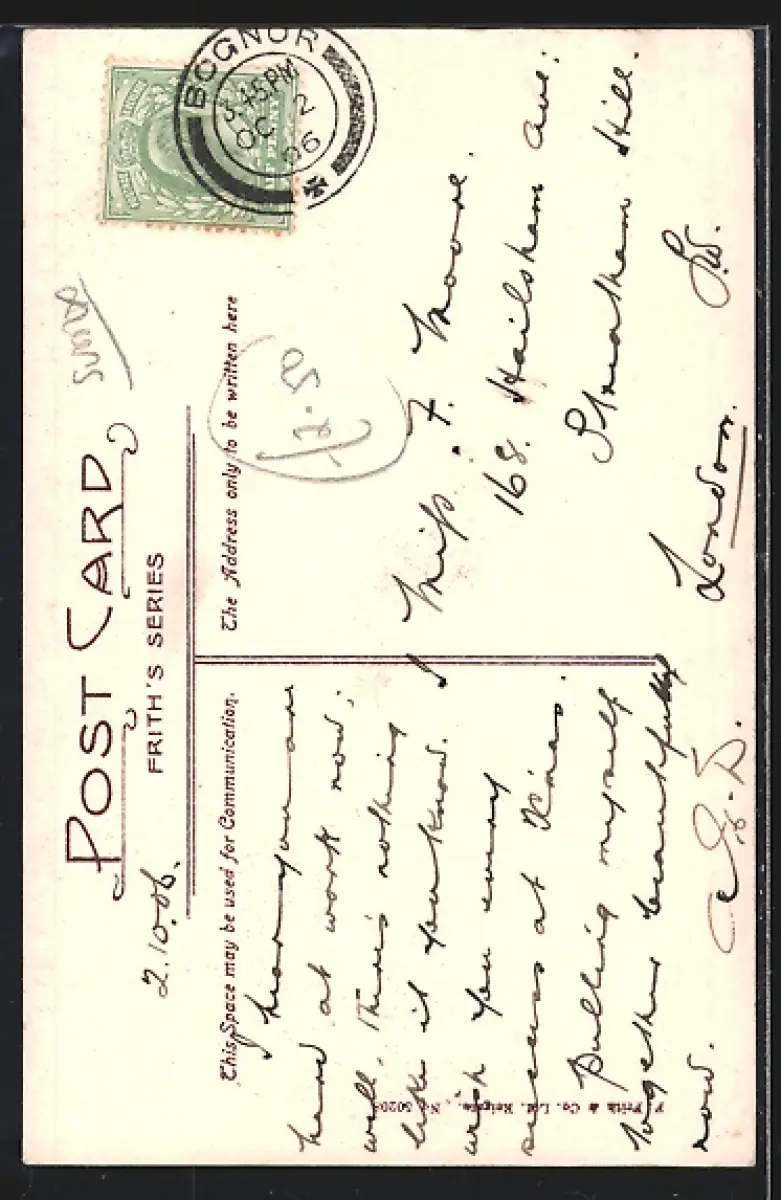 POST CARD
FRITH'S SERIES
2.10.06.
This Space may be used for Communication.
The Address only to be written here
I hear you are
hard at work now,
well. There's nothing
like it you know. I
wish you every
success at Xmas.
Pulling myself
together beautifully
now.
Miss. F. Moore.
168. Hailsham Ave:
Streatham Hill.
S.W.
London.
BOGNOR
3.45PM
OC 2
06
SUSSEX
12.50
F. Frith & Co. Ltd. Reigate.